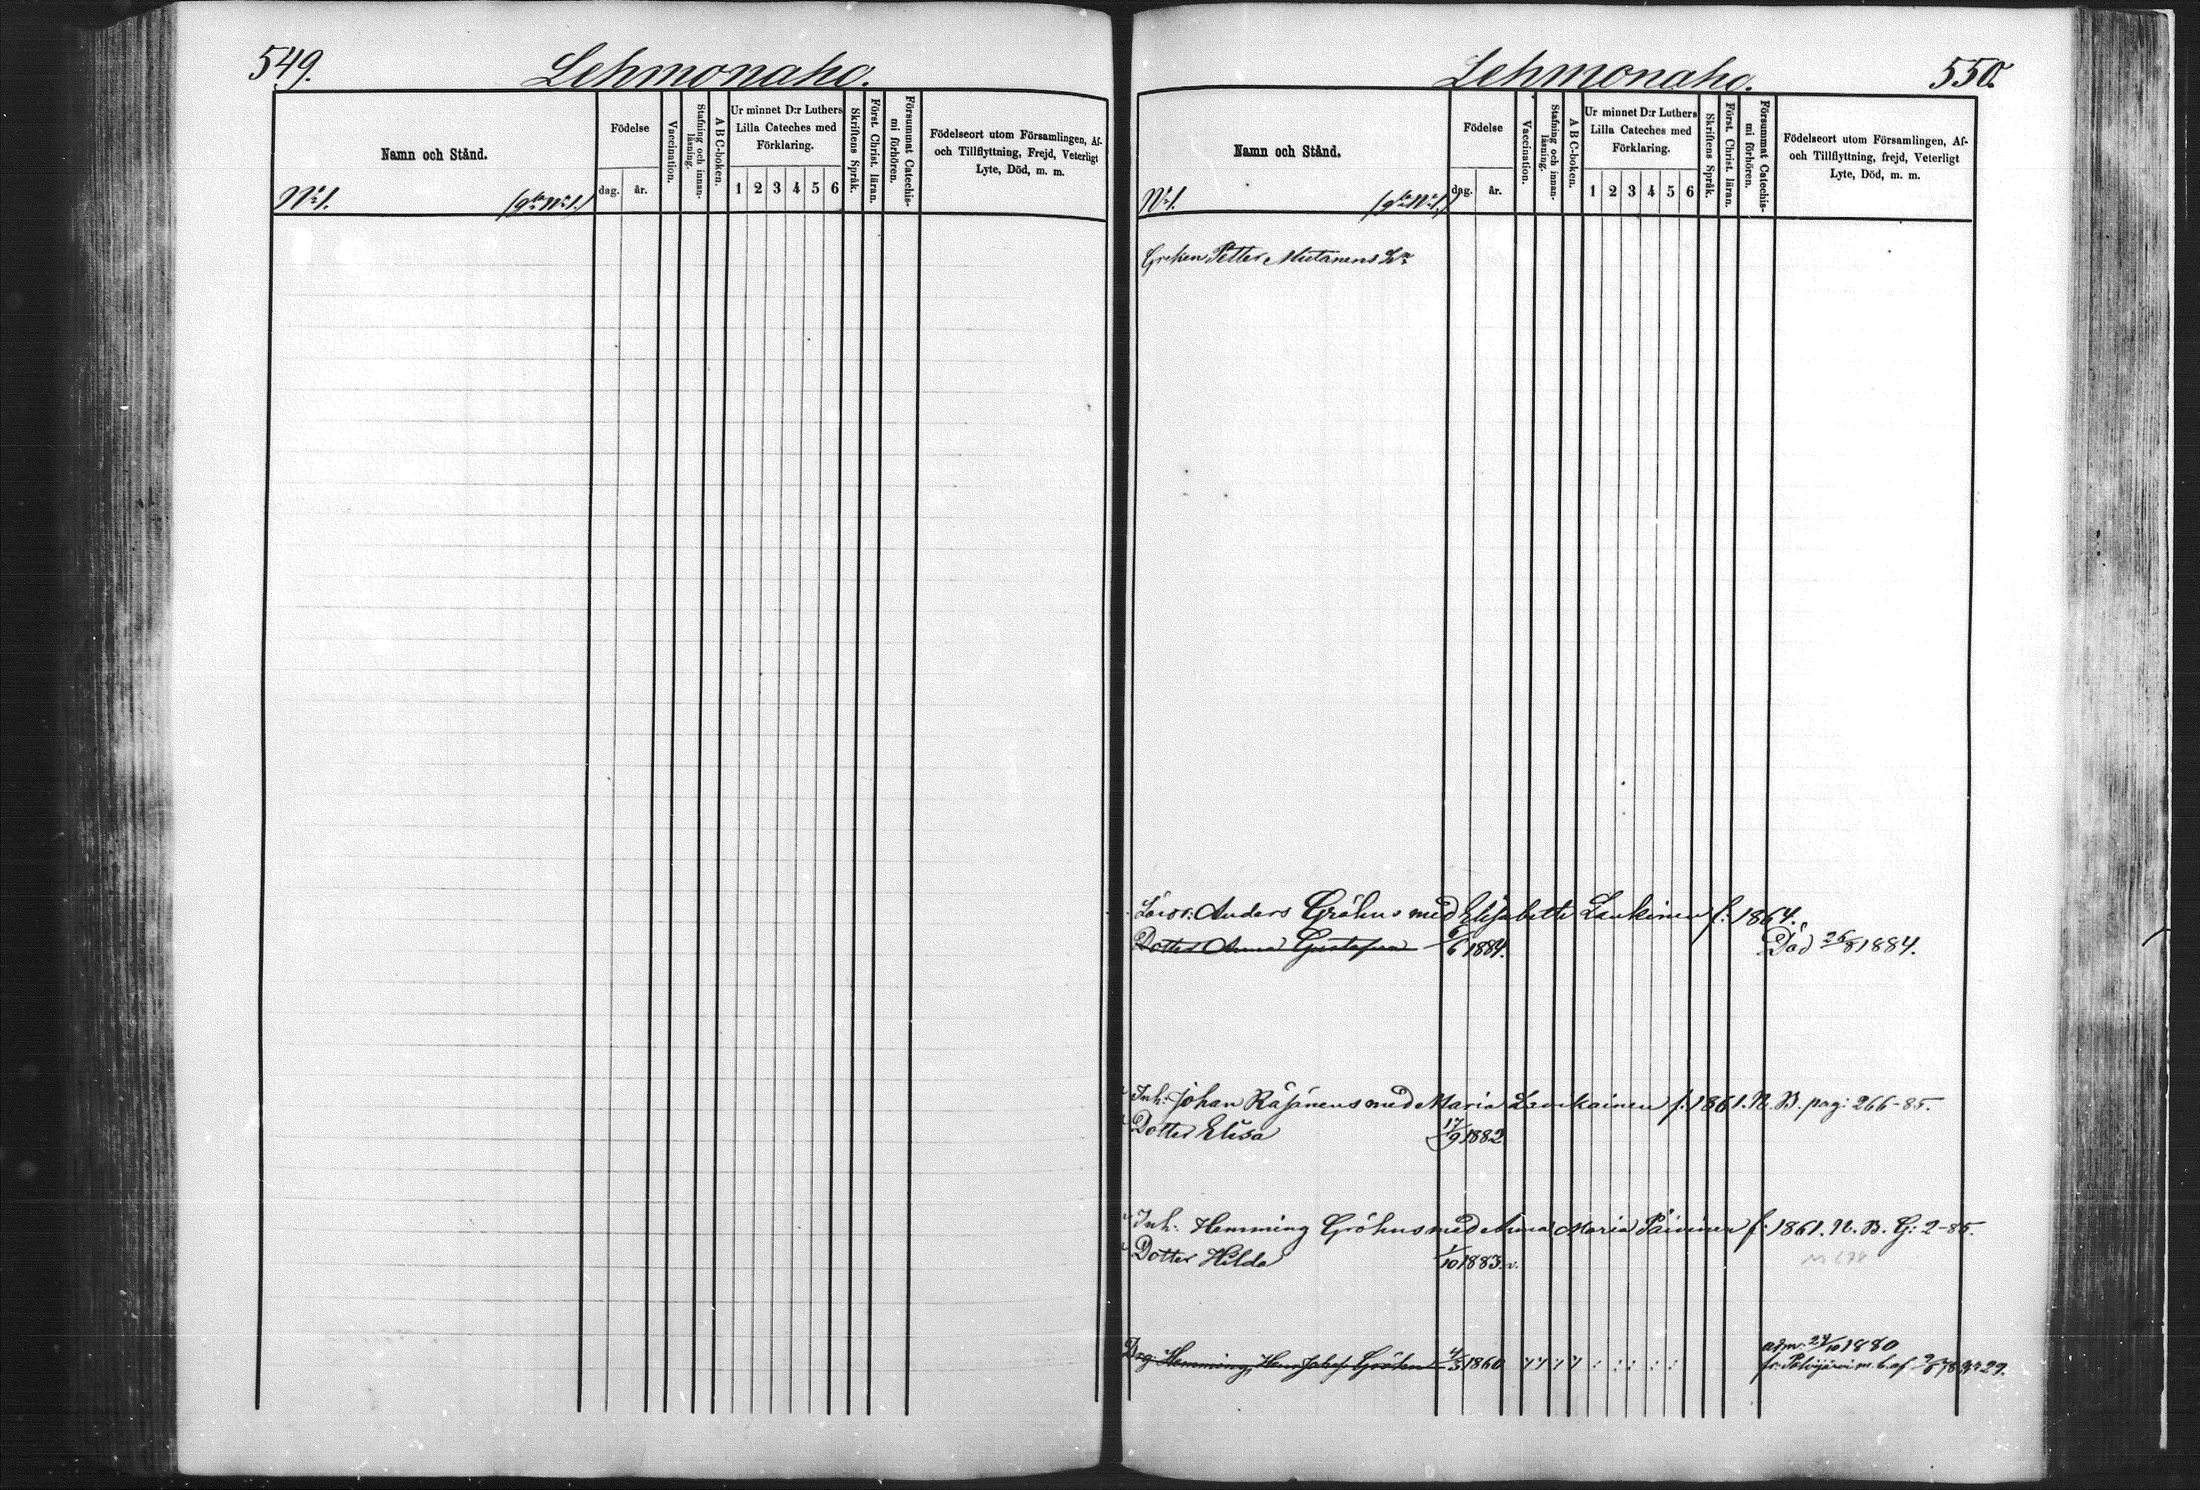 549.
Lehmonaho.
Namn och Stånd.
Födelse
dag.
år.
Vaccination.
Stafning och innan-
läsning.
A B C-boken.
Ur minnet D:r Luthers
Lilla Cateches med
Förklaring.
1 2 3 4 5 6
Skriftens Språk.
Först. Christ. läran.
Försummat Catechis-
mi förhören.
Födelseort utom Församlingen, Af-
och Tillflyttning, Frejd, Veterligt
Lyte, Död, m. m.
No 1.
(gla No 1.)
Lehmonaho.
550.
Namn och Stånd.
Födelse
dag.
år.
Vaccination.
Stafning och innan-
läsning.
A B C-boken.
Ur minnet D:r Luthers
Lilla Cateches med
Förklaring.
1 2 3 4 5 6
Skriftens Språk.
Först. Christ. läran.
Försummat Catechis-
mi förhören.
Födelseort utom Församlingen, Af-
och Tillflyttning, frejd, Veterligt
Lyte, Död, m. m.
No 1.
(gla No 1.)
Greken Petter Mutanens
Anders Gröhns med Elisabeth Laukinen f: 1864.
Dotter Anna Gustafva 6/6 1884. Död 26/8 1884.
Inh: Johan Räsänens med Maria Laukainen f: 1861. N. B. pag: 266-85.
Dotter Elisa 17/9 1882
Inh: Hemming Gröhns med Anna Maria Päivinen f: 1861. N. B. G: 2-85.
Dotter Hilda 1/10 1883. v.
Drg Hemming Gröhn 4/3 1860
adm. 24/10 1880
fr. Polvijärvi m. b. af 29.